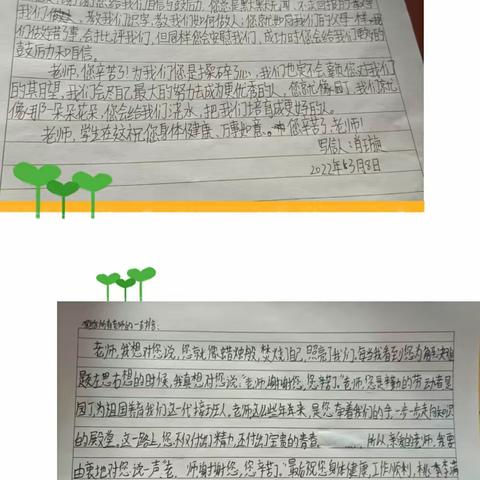 我们做人,教我们识字,教我们如何做人,您就如同我们的父母一样,
们做错事,会批评我们,但同样您会安慰我们,成功时您会给我们更多的
鼓励和自信。
老师,您辛苦了!为我们您是操碎了心,我们也定不会辜负您对我们
的其期望。我们会尽自己最大的努力去成为更优秀的人,您就像雨,我们就
像那一朵朵花朵,您会给我们浇水,把我们培育成更好的人。
老师,学生在这祝您身体健康、万事如意。您辛苦了,老师!
2022年3月8日
老师,我想对您说,您就像蜡烛般,焚烧了自己,照亮了我们。每当我看到您为解决难
题左思右想的时候,我真想对您说:"老师,谢谢您,您辛苦了。"老师,您是辛勤的劳动者是
园丁为祖国养育我们这一代接班人。老师,这么些年来,是您牵着我们的手一步一步走向知识
的殿堂。这一路上,您不仅付出了精力,还付出了宝贵的青春。所以亲爱的老师,我要
由衷地对您说一声老师谢谢您,您辛苦了。"最后祝您身体健康,工作顺利,桃李满